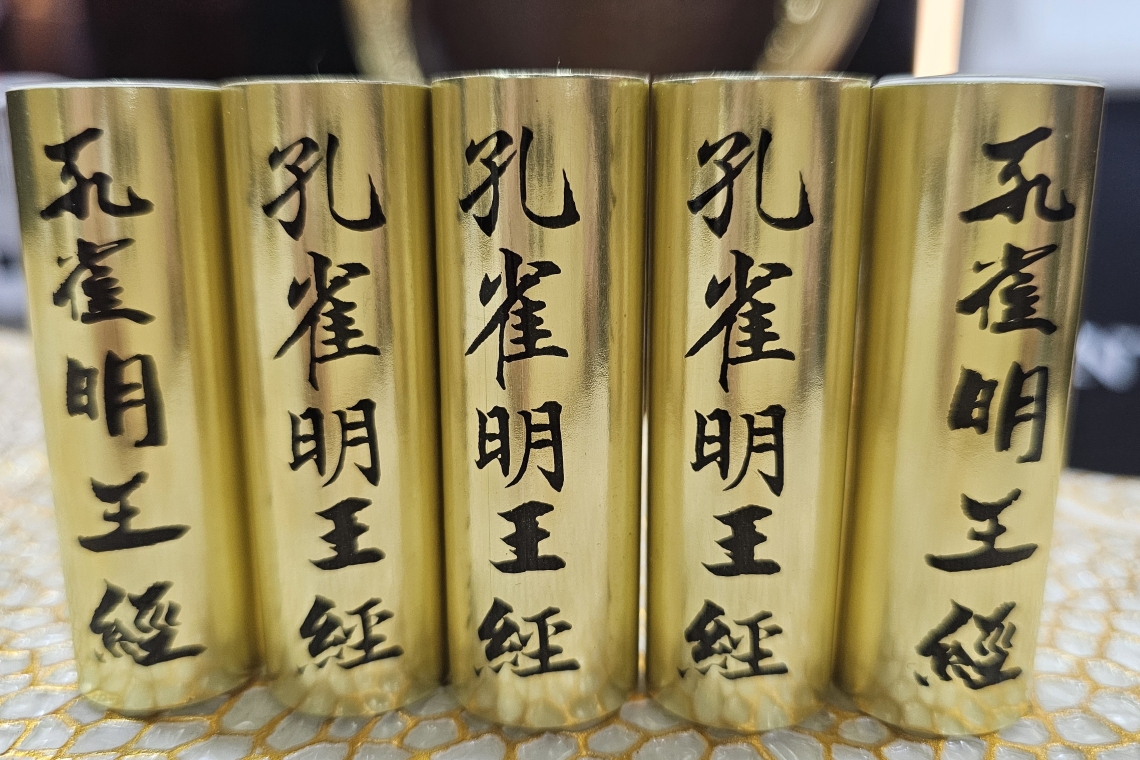 孔雀明王經
孔雀明王經
孔雀明王經
孔雀明王經
孔雀明王經